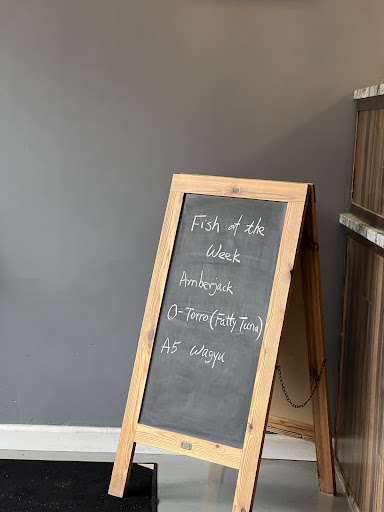 Fish of the
Week
Amberjack
O-Torro (Fatty Tuna)
A5 Wagyu